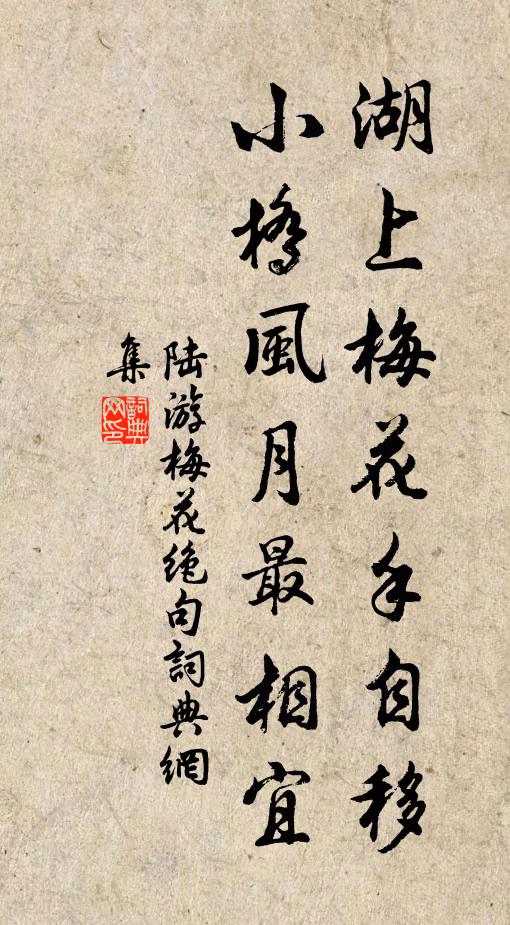 湖上梅花手自移
小橋風月最相宜
陸游梅花絕句詞典網
集
詞典網印